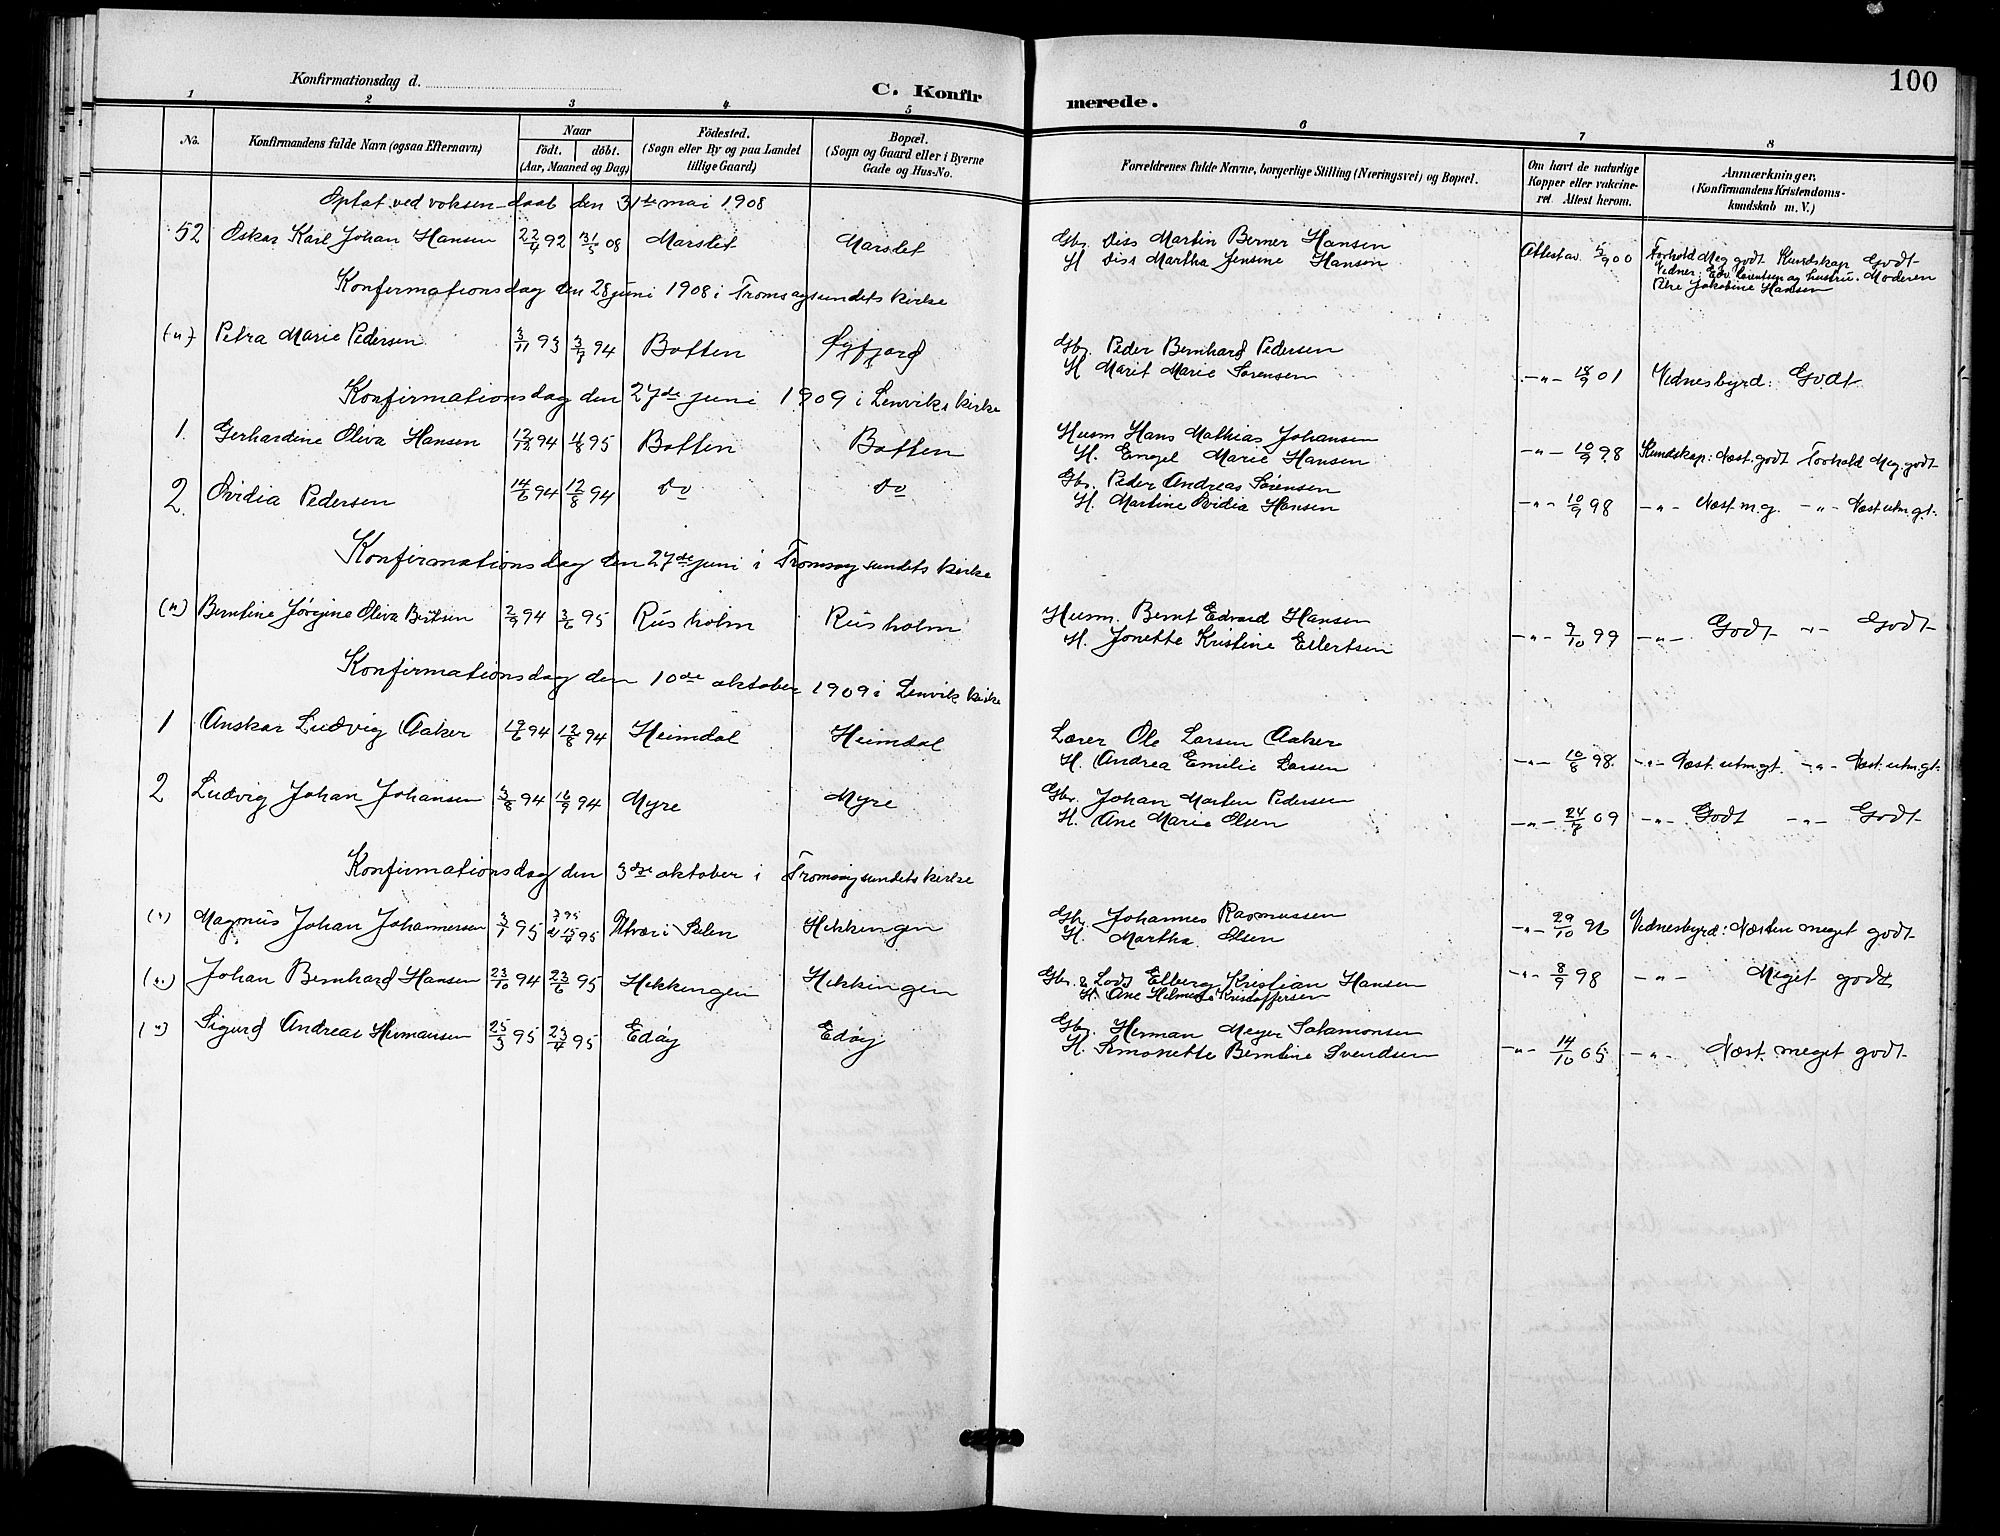 100
Konfirmationsdag d.
C. Konfirmerede.
1 2 3 4 5 6 7 8
No. Konfirmandens fulde Navn (ogsaa Efternavn) Naar födt. döbt. (Aar, Maaned og Dag) Födested. (Sogn eller By og paa Landet tillige Gaard) Bopæl. (Sogn og Gaard eller i Byerne Gade og Hus-No. Forældrenes fulde Navne, borgerlige Stilling (Næringsvei) og Bopæl. Om havt de naturlige Kopper eller vakcineret. Attest herom. Anmærkninger. (Konfirmandens Kristendomskundskab m. V.)
Optat ved voksen-daab den 31te mai 1908
52 Oskar Karl Johan Hansen 22/4 92 31/5 08 Marslet Marslet Gbr. Diss Martin Berner Hansen Attest av 5/9 00 Forhold Meg. godt Kundskap Godt
H. Diss Martha Jensine Hansen Vidner: Edv. Lorentsen og hustru. Moderen
Jakobine Hansen
Konfirmationsdag den 28 juni 1908 i Tromsøysundets kirke
(n) Petra Marie Pedersen 3/11 93 3/9 94 Botten Øyfjord Gbr. Peder Bernhard Pedersen
H. Marit Marie Sørensen -"- 18/9 01 Vidnesbyrd: Godt
Konfirmationsdag den 27de juni 1909 i Lenviks kirke
1. Gerhardine Oliva Hansen 12/12 94 11/8 95 Botten Botten Husm Hans Mathias Johansen
H. Engel Marie Hansen -"- 10/9 98 Kundskap: Næst. godt Forhold Meg. godt
2. Ovidia Pedersen 14/6 94 12/8 94 do do Gbr. Peder Andreas Sørensen
H. Martine Ovidia Hansen -"- 10/9 98 -"- Næst m.g. -"- Næst utm.gt.
Konfirmationsdag den 27de juni i Tromsøysundets kirke
(n) Berntine Jørgine Oliva Bertsen 2/9 94 3/6 95 Rusholm Rusholm Husm. Bernt Edvard Hansen
H. Jonette Kristine Ellertsen -"- 9/10 99 -"- Godt -"- Godt
Konfirmationsdag den 10de oktober 1909 i Lenvik kirke
1 Anskar Ludvig Aaker 19/6 94 12/8 94 Heimdal Heimdal Lærer Ole Larsen Aaker
H. Andrea Emilie Larsen -"- 10/8 98. -"- Næst. utm.gt. -"- Næst. utm.gt.
2 Ludvig Johan Johansen 3/8 94 16/9 94 Myre Myre Gbr. Johan Morten Pedersen
H. Ane Marie Olsen -"- 24/7 09 -"- Godt -"- Godt
Konfirmationsdag den 3die oktober i Tromsøysundets kirke
(n) Magnus Johan Johannesen 3/1 95 15/4 95 Utvær i Solen Hekkingen Gbr. Johannes Rasmussen
H. Martha Olsen -"- 29/10 96 Vidnesbyrd: Næsten meget godt
(n) Johan Bernhard Hansen 23/10 94 23/6 95 Hekkingen Hekkingen Gbr. & Lods Elberg Kristian Hansen -"- 8/9 98 -"- Meget godt
H. Ane Helmine Kristoffersen
(n) Sigurd Andreas Hermansen 25/3 95 23/4 95 Edøy Edøy Gbr. Herman Meyer Salamonsen
H. Simonette Berntine Svendsen -"- 14/10 05 -"- Næst. meget godt